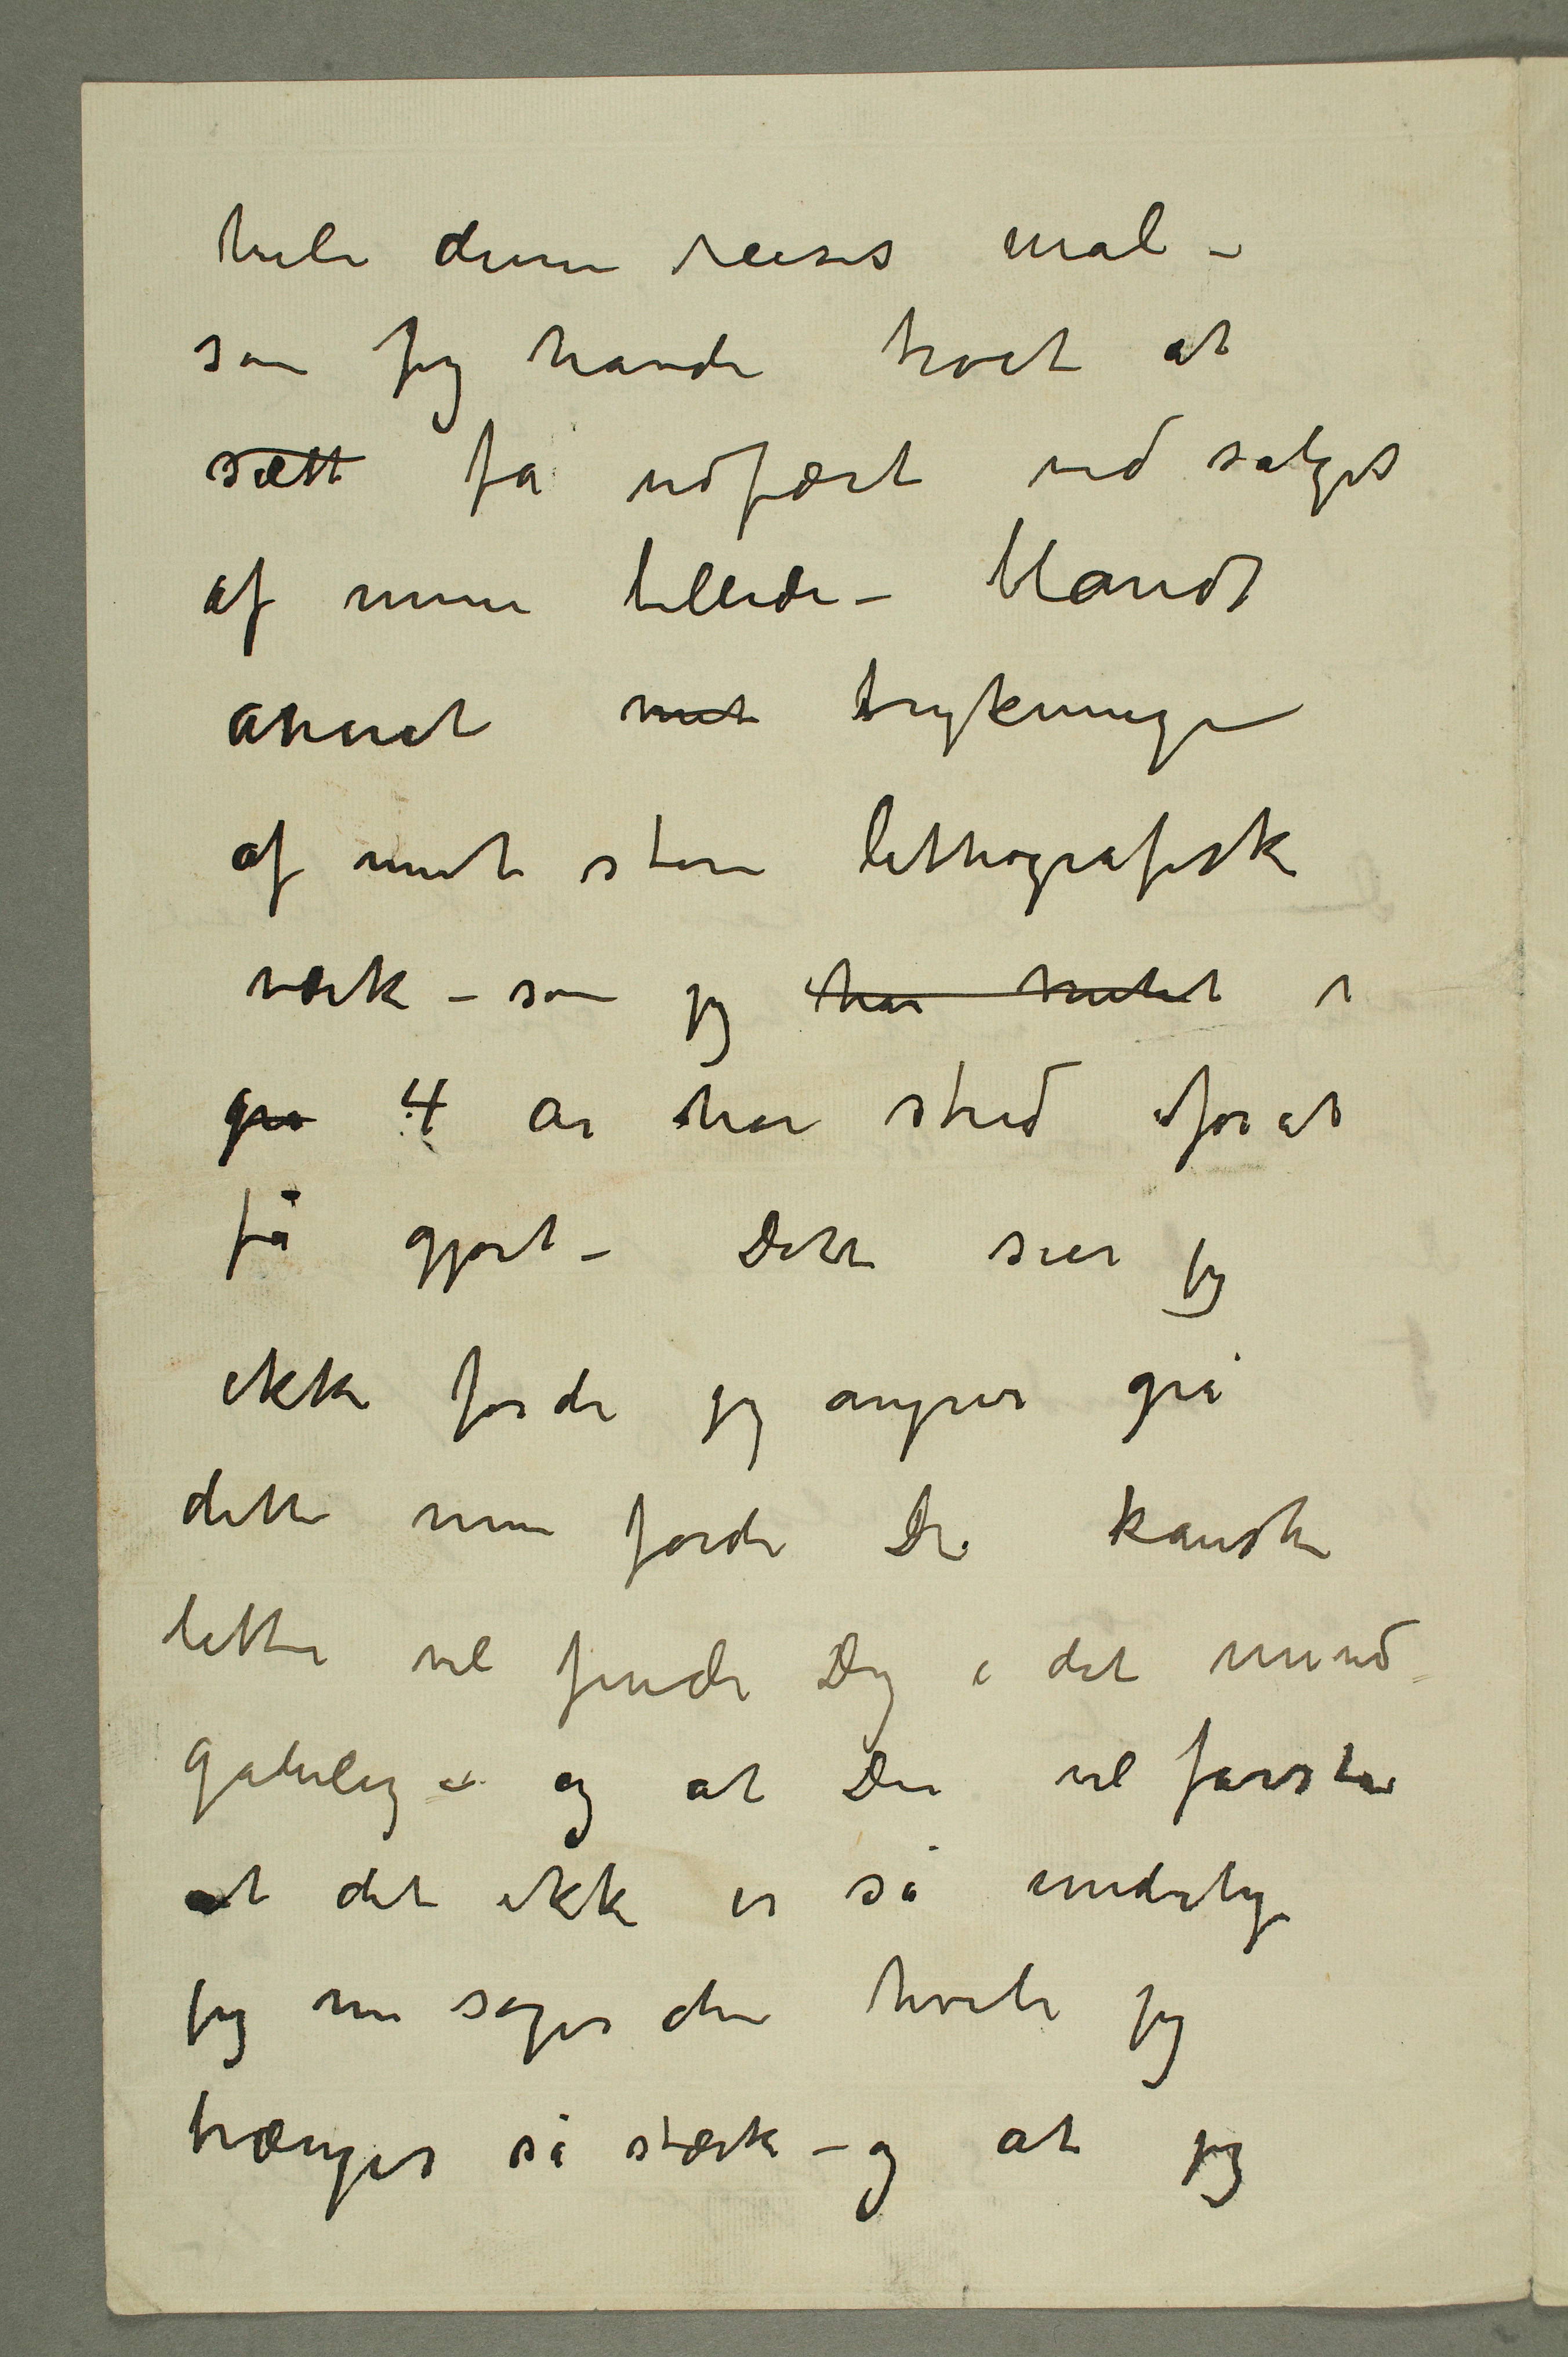 hele denne reises mål –
som jeg havde troet at
sætt få udført ved salget
af mine billeder – blandt
annet mit trykningen
af mit store lithografiske
værk – som jeg har ventet i
gra 4 år har stred for at
få gjort – Dette sier jeg
ikke fordi jeg angrer på
dette men fordi Du kanske
lettere vil finde Dig i det uund
gåelige – og at Du vil forstå
at det ikke er så underlig
jeg nu søger den hvile jeg
trænger så stærkt – og at jeg